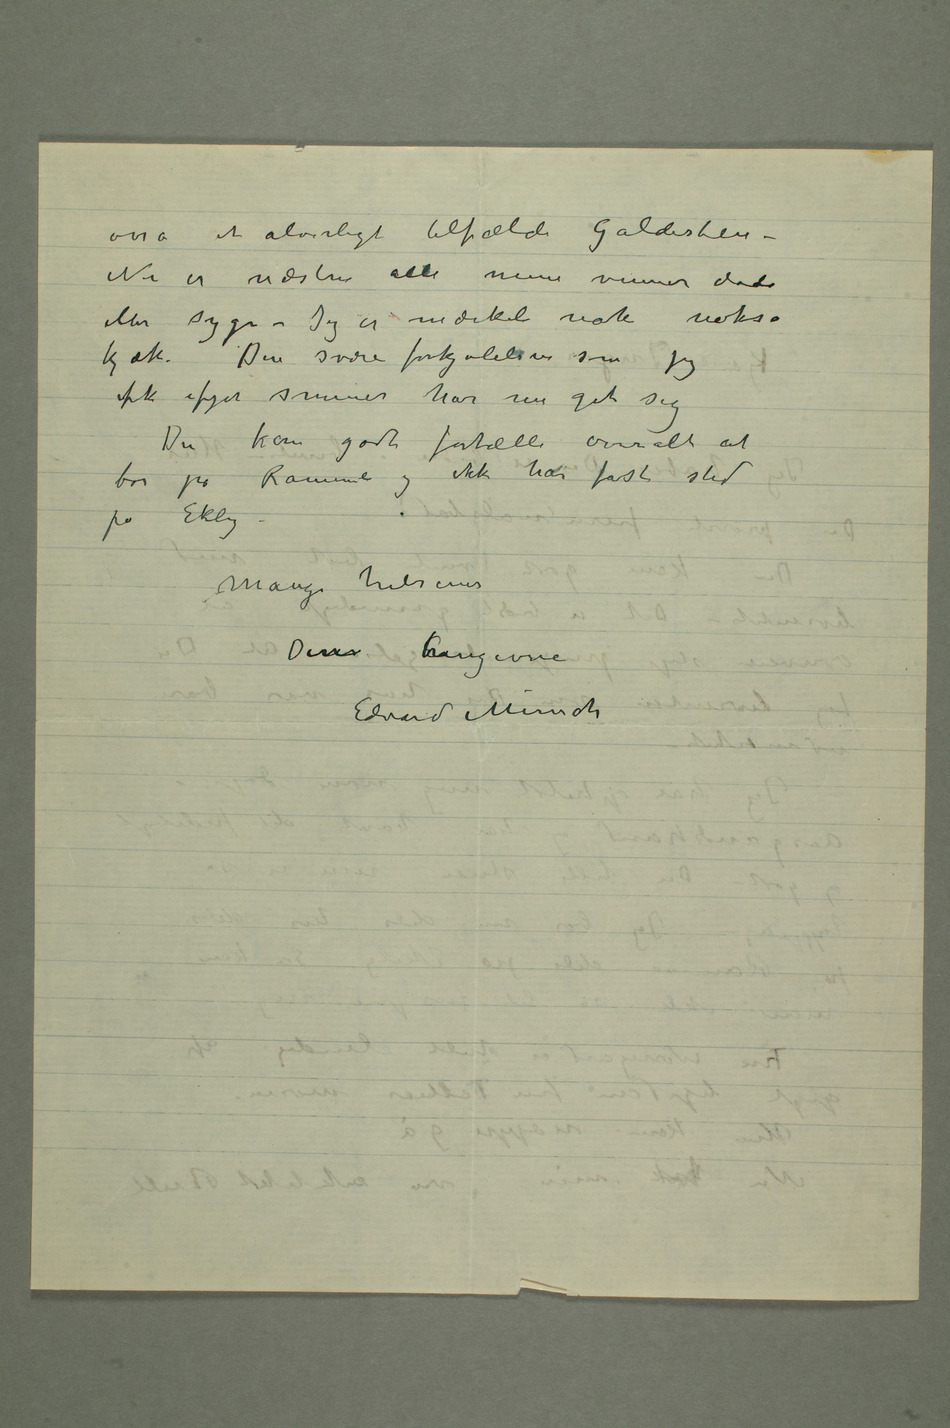 også et alvorligt tilfælde Galdesten –
Nu er næsten alle mine venner døde
eller syge – Jeg er mærkeli nok nokså
kjæk. Den svære forkjølelsen som jeg
fik ifjor sommer har nu git sig
Du kan godt fortælle overalt at
bor på Ramme og ikke har fast sted
på Ekely –
Mange hilsener
Deres hengivne
Edvard Munch